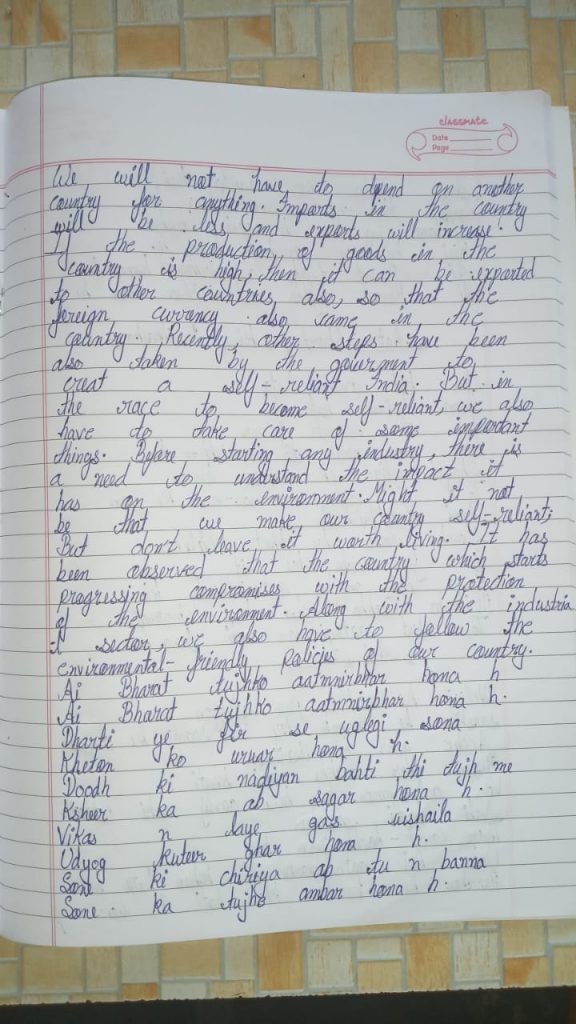 classmate
Date
Page
We will not have to depend on another
country for anything. Imports in the country
will be less and exports will increase.
If the production of goods in the
country is high, then it can be exported
to other countries, also, so that the
foreign currency also came in the
country. Recently, other steps have been
also taken by the government to
creat a self-reliant India. But in
the race to become self-reliant, we also
have to take care of some important
things. Before starting any industry, there is
a need to understand the impact it
has on the environment. Might it not
be that we make our country self-reliant;
But don't leave it worth living. It has
been observed that the country which starts
progressing compromises with the protection
of the environment. Along with the industria
l sector, we also have to follow the
environmental-friendly policies of our country.
Ai Bharat tujhko aatmnirbhar hona h
Ai Bharat tujhko aatmnirbhar hona h.
Dharti ye fir se uglegi sona
Kheton ko urvar hona h.
Doodh ki nadiyan bahti thi tujh me
Ksheer ka ab sagar hona h.
Vikas n laye gas vishaila
Udyog kuteer ghar hona h.
Sone ki chiriya ab tu n banna
Sone ka tujhe ambar hona h.